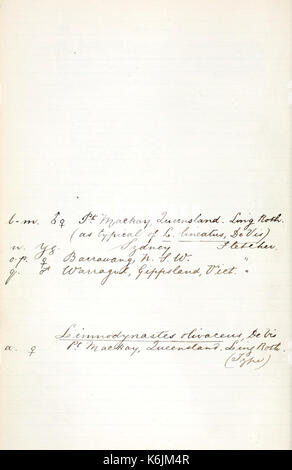 l-m. ♀ Pt. Mackay, Queensland. Ling Roth.
(as typical of L. lineatus, De Vis)
n. Yg. Sydney Fletcher.
o.p. ♀ Barrawang, N.S.W. "
q. Warragul, Gippsland, Vict. "
Limnodynastes olivaceus, De Vis
a. ♀ Pt. Mackay, Queensland. Ling Roth.
(Type)
alamy
Image ID: K6JM4R
www.alamy.com